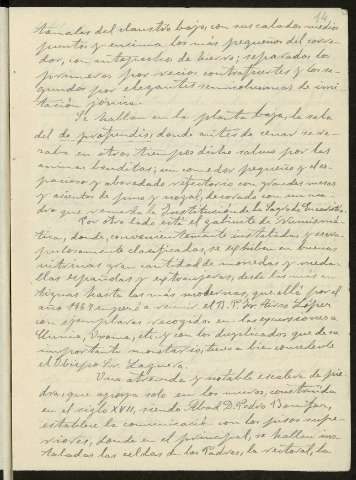 14
tanales del claustro bajo, con sus calados medio
puntos y encima los más pequeños del corre-
dor, con antepechos de hierro; separados los
primeros por recios contrafuertes y los se-
gundos por elegantes semicolumnas de imi-
tación jónica.
Se hallan en la planta baja, la sala
del de profundis, donde antes de cenar se re-
zaba en otros tiempos dicho salmo por las
animas benditas; un comedor pequeño y el es-
pacioso y abovedado refectorio con grandes mesas
y asientos de pino y nogal, decorado con un cua-
dro que recuerda la Institución de la Sagrada Eucaristía.
Por otro lado está el gabinete de Numismá-
tica, donde, convenientemente instaladas y escru-
pulosamente clasificadas, se exhiben en buenas
vitrinas gran cantidad de monedas y meda-
llas españolas y extranjeras, desde las más an-
tiguas hasta las más modernas, que allá por el
año empezó a reunir el R. P. Fr.
con ejemplares recogidos en las excursiones a
Clunia, etc. y con los duplicados que de su
importante monetario, tuvo a bien concederle
el Obispo Sr. Laguera.
Una atrevida y notable escalera de pie-
dra, que apoya solo en los muros, construida
en el siglo XVII, siendo Abad D. Pedro
establece la comunicación con los pisos supe-
riores, donde en el principal, se hallan ins-
taladas las celdas de los Padres, la rectoral, la